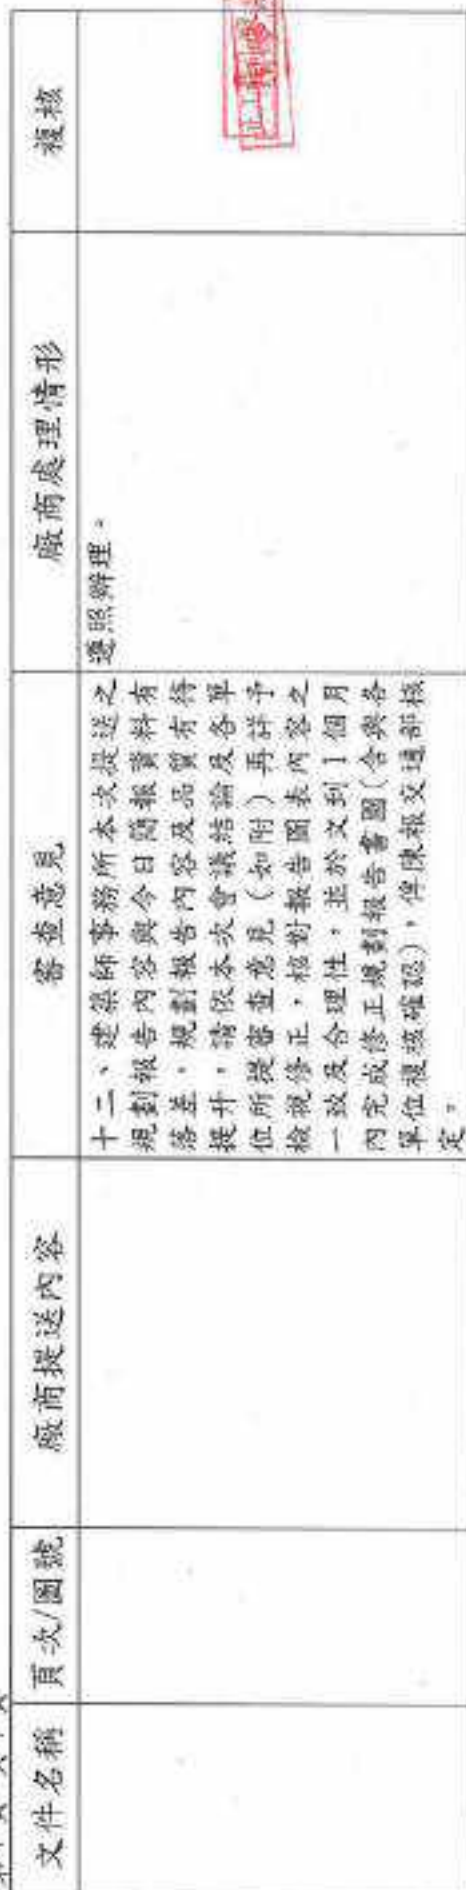 文件名稱
頁次/圖號
廠商提送內容
審查意見
廠商處理情形
複核
十二、建築師事務所本次提送之
規劃報告內容與今日簡報資料有
落差，規劃報告內容及品質有待
提升，請依本次會議結論及各單
位所提審查意見（如附）再詳予
檢視修正，核對報告圖表內容之
一致及合理性，並於文到1個月
內完成修正規劃報告書圖(含與各
單位複核確認)，俾陳報交通部核
定。
遵照辦理。